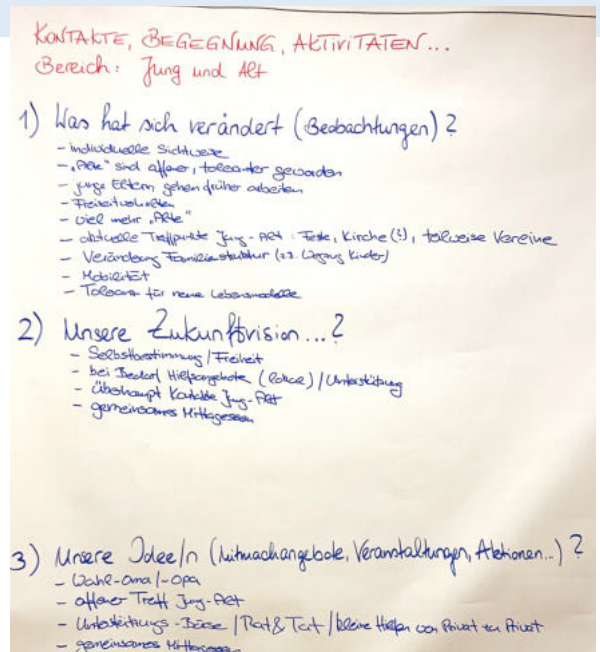 KONTAKTE, BEGEGNUNG, AKTIVITÄTEN...
Bereich: Jung und Alt
1) Was hat sich verändert (Beobachtungen)?
- individuelle Sichtweise
- „Alte" sind offener, toleranter geworden
- junge Eltern gehen früher arbeiten
- Freizeitverhalten
- viel mehr „Alte"
- aktuelle Treffpunkte Jung-Alt: Feste, Kirche (?), teilweise Vereine
- Veränderung Familienstruktur (z.B. Wegzug Kinder)
- Mobilität
- Toleranz für neue Lebensmodelle
2) Unsere Zukunftsvision...?
- Selbstbestimmung / Freiheit
- bei Bedarf Hilfsangebote (lokal) / Unterstützung
- überhaupt Kontakte Jung-Alt
- gemeinsames Mittagessen
3) Unsere Idee/n (Mitmachangebote, Veranstaltungen, Aktionen...)?
- Wahl-oma/-opa
- offener Treff Jung-Alt
- Unterstützungs-Börse / Rat & Tat / kleine Hilfen von Privat zu Privat
- gemeinsames Mittagessen